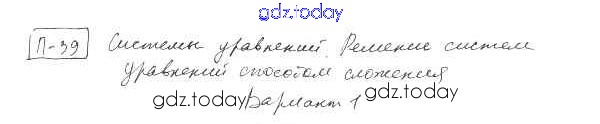 gdz.today
П-39 Системы уравнений. Решение систем
уравнений способом сложения
gdz.today Вариант 1 gdz.today